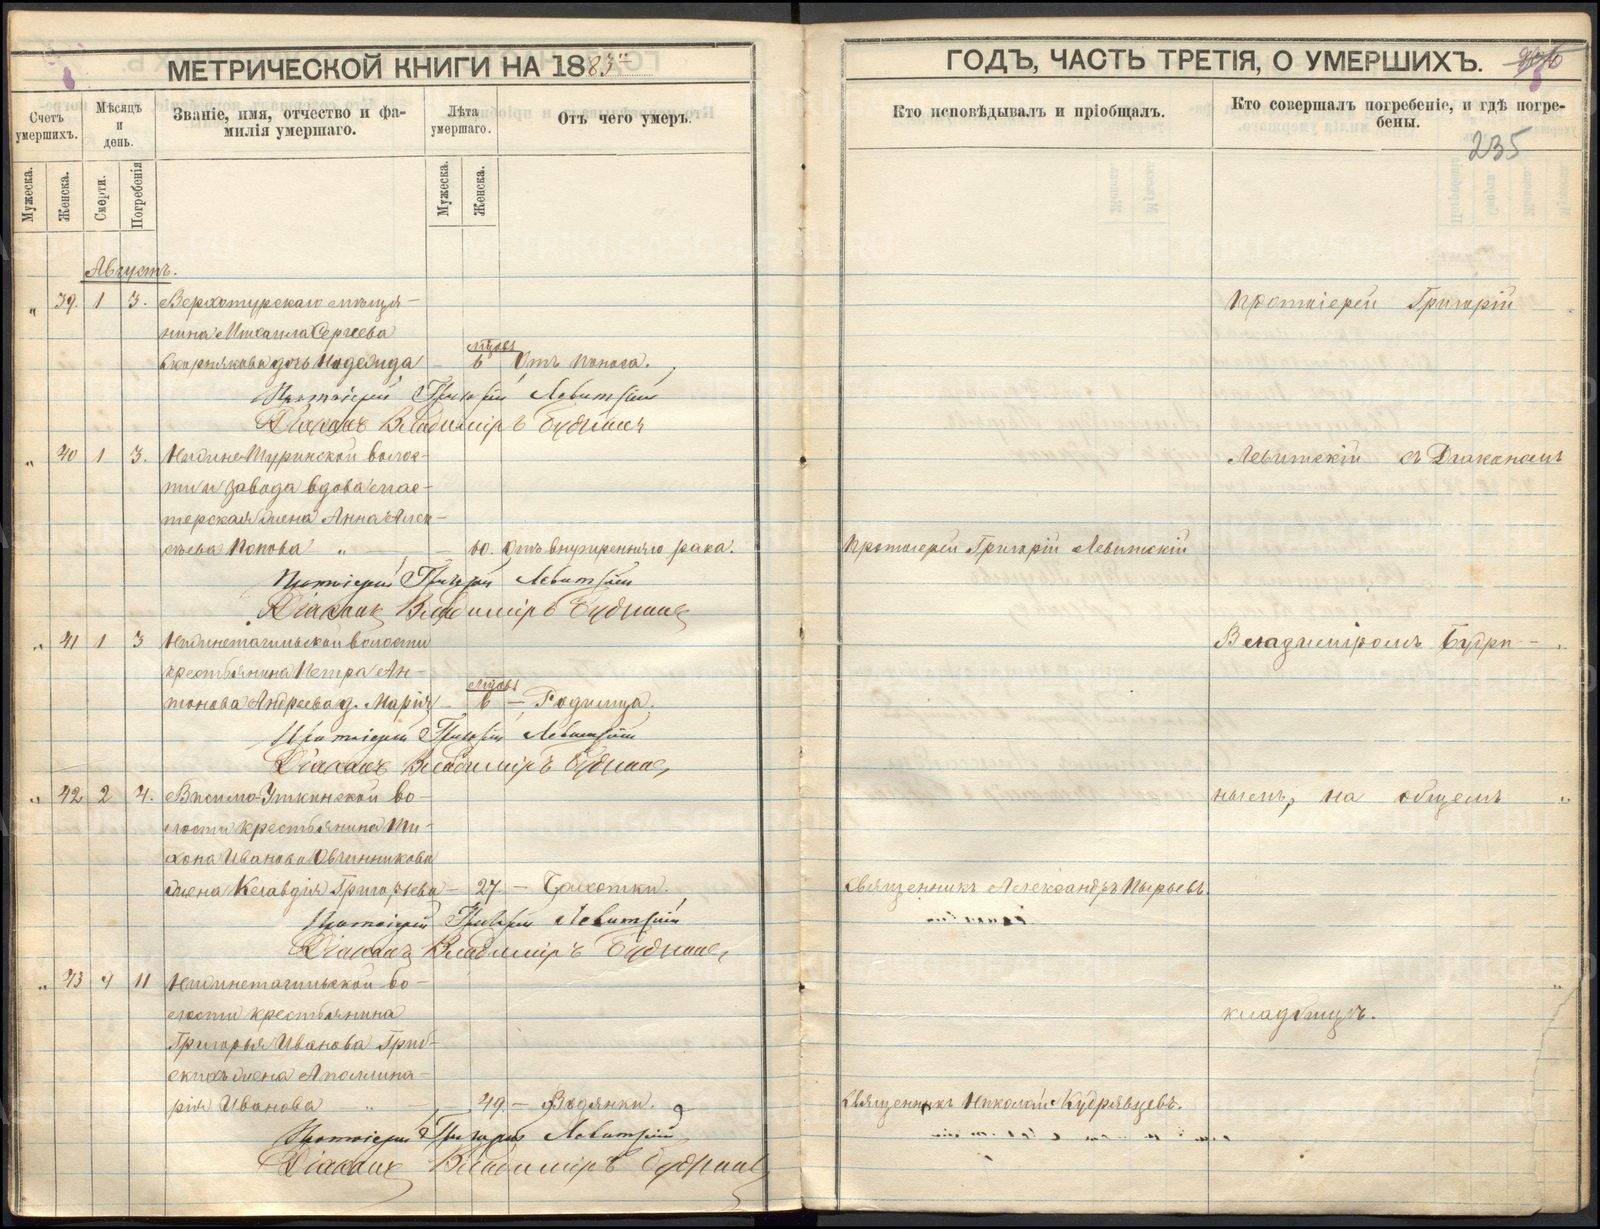 МЕТРИЧЕСКОЙ КНИГИ НА 1883й
ГОДЪ, ЧАСТЬ ТРЕТІЯ, О УМЕРШИХЪ.
235
Счетъ умершихъ.
Мѣсяцъ и день.
Званіе, имя, отчество и фа-
милія умершаго.
Лѣта умершаго.
Отъ чего умеръ.
Кто исповѣдывалъ и пріобщалъ.
Кто совершалъ погребеніе, и гдѣ погре-
бены.
Мужеска.
Женска.
Смерти.
Погребенія
Мужеска.
Женска.
Августъ.
„ 39. 1 3. Верхотурскаго мѣща-
нина Михаила Сергѣева
дочь Надежда – мѣсяц. 6 Отъ поноса.
Протоіерей Григорій Левитскій
Діаконъ Владиміръ Бурнинъ
„ 40 1 3. Нижне-Туринской волос-
ти и завода вдова мас-
терская жена Анна Алек-
сѣева Попова „ – 60. Отъ внутренняго рака.
Протоіерей Григорій Левитскій
Діаконъ Владиміръ
„ 41 1 3 Нижнетагильской волости
крестьянина Петра Ан-
тонова Андреева д. Марія – 6 – Родимца.
Протоіерей Григорій Левитскій
Діаконъ Владиміръ
„ 42 2 4. Висимо-Уткинской во-
лости крестьянина Ти-
хона Иванова Овчинникова
жена Клавдія Григорьева – 27. – Чахотки.
Протоіерей Григорій Левитскій
Діаконъ Владиміръ
„ 43 4 11 Нижнетагильской во-
лости крестьянина
Григорья Иванова
жена Аполлина-
рія Иванова „ – 49. – Водянки.
Протоіерей Григорій Левитскій
Діаконъ Владиміръ
Протоіерей Григорій Левитскій
Священникъ Александръ Пырьевъ.
Священникъ Николай Кудрявцевъ.
Протоіерей Григорій
Левитскій съ Діакономъ
Владиміромъ
нымъ, на общемъ „
кладбищѣ.